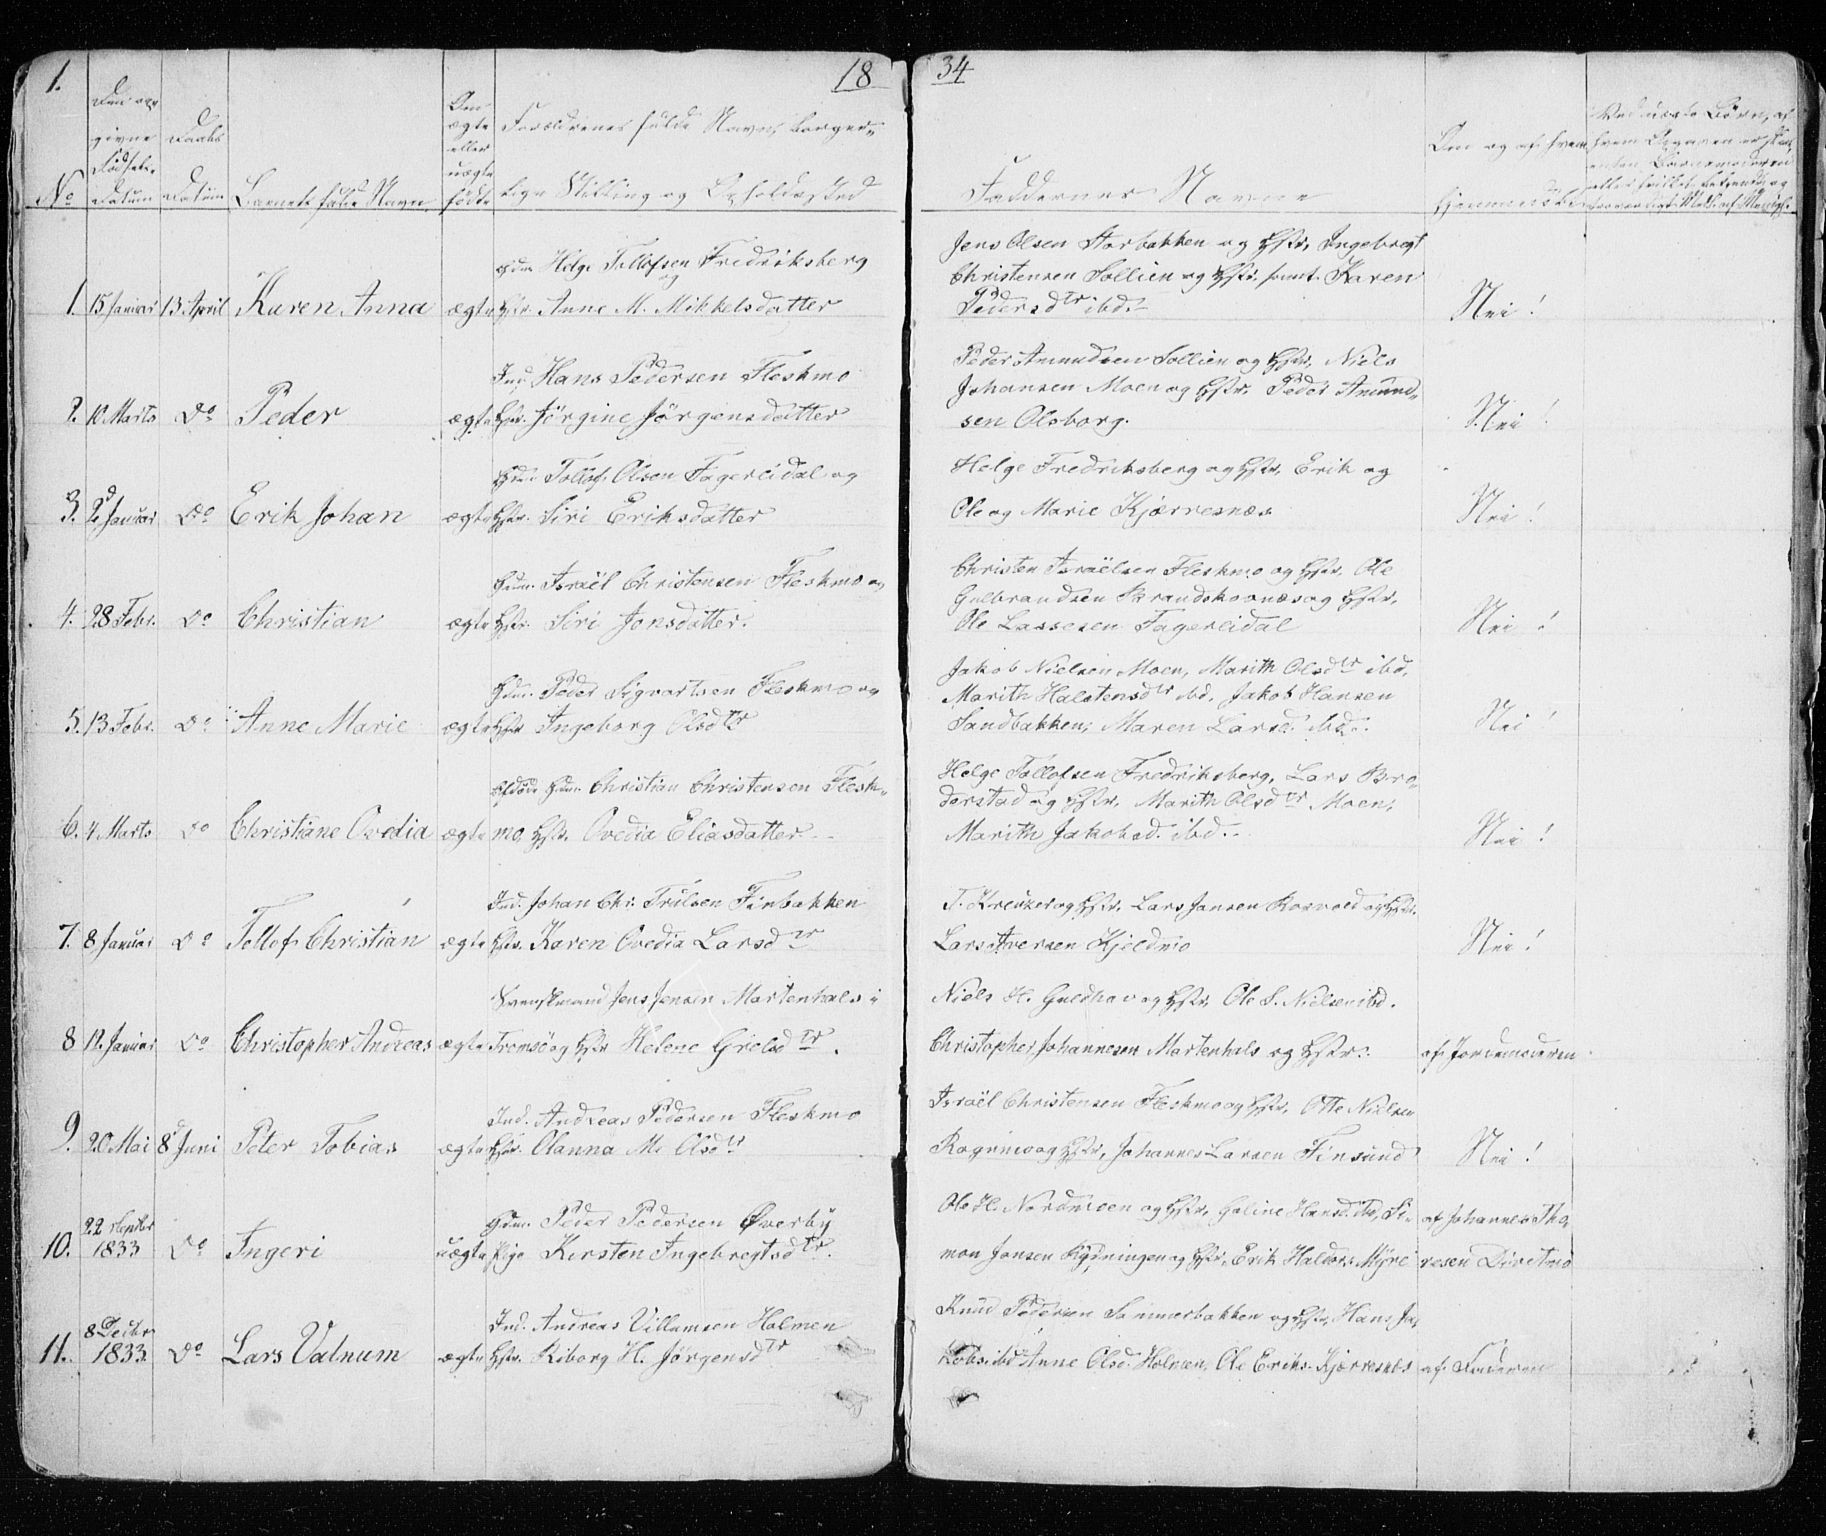 1. 18 34
No
Den opgivne Fødsels Datum
Daabs Datum
Barnets fulde Navn
Om ægte eller uægte fødte
Forældrenes fulde Navn, borgerlige Stilling og Opholdssted
Faddernes Navne
Om og af hvem hjemmedøbt
1. 15 Januar 13 April Karen Anna ægte Gdm. Helge Tollofsen Fredriksberg og
Hstr. Anne M. Mikkelsdatter
Jens Olsen Storbakken og Hstr. Ingebregt
Christensen Sollien og Hstr. samt Karen
Pedersdtr ibd.
Nei!
2. 10 Marts do Peder ægte Ind. Hans Pedersen Fleskmo
Hstr. Jørgine Jørgensdatter
Peder Amundsen Sollien og Hstr. Niels
Johansen Moen og Hstr. Peder Amund-
sen Olsborg.
Nei!
3. 2d Januar do Erik Johan ægte Gdm. Tollof Olsen Fagerlidal og
Hstr. Siri Eriksdatter
Helge Fredriksberg og Hstr. Erik og
Ole og Marie Kjærresnæs
Nei!
4. 28 Febr. do Christian ægte Gdm. Israël Christensen Fleskmo og
Hstr. Siri Jonsdatter.
Christen Israëlsen Fleskmo og Hstr. Ole
Gulbrandsen og Hstr.
Ole Lassesen Fagerlidal
Nei!
5. 13 Febr. do Anne Marie ægte Gdm. Peder Sigvartsen Fleskmo og
Hstr Ingeborg Olsdtr
Jakob Nielsen Moen, Marith Olsdtr ibd.
Marith Halstensdtr ibd. Jakob Hansen
Sandbakken, Maren Larsd. ibd.
Nei!
6. 4. Marts do Christiane Ovedia ægte Afdøde Gdm. Christian Christensen Flesk-
mo, Hstr. Ovedia Eliasdatter
Helge Tollofsen Fredriksberg, Lars Bro-
derstad og Hstr. Marith Olsdtr Moen,
Marith Jakobsd. ibd.
Nei!
7. 8 Januar do Tollof Christian ægte Ind. Johan Chr. Trulsen Finbakken
Hstr. Karen Ovedia Larsdtr
T. Kreuzer og Hstr. Lars Jansen Rosvold og Hstr.
Lars Iversen Kjeldmo
Nei!
8 12. Januar do Christopher Andreas ægte Svenskmand Jens Jensen Martenhals i
Tromsø og Hstr Helene Grelsdtr.
Niels H. Guldhav og Hstr. Ole S. Nielsen ibd.
Christopher Johannesen Martenhals og Hstr.
af Jordemoderen
9. 20 Mai 8d Juni Peter Tobias ægte Ind. Andreas Pedersen Fleskmo
Hstr. Olanna M. Olsdtr
Israël Christensen Fleskmo og Hstr. Otte Nielsen
Rognmo og Hstr, Johannes Larsen Finsund
Nei!
10. 22 Septbr 1833 do Ingeri uægte Gdm. Peder Pedersen Øverby
Pige Kirsten Ingebregtsdtr.
Ole H. Nordmoen og Hstr, Goline Hansd. ibd, Si-
mon Jonsen og Hstr, Erik Haldors. Myre
af Johannes Tho-
resen Divitmo
11. 8 Decbr 1833 do Lars Valnum ægte Ind. Andreas Villumsen Holmen
Hstr. Kiborg H. Jørgensdtr
Knud Pedersen Sommerbakken og Hstr, Hans Ja-
kobs. ibd Anne Olsd. Holmen, Ole Eriks. Kjærresnæs
af Faderen